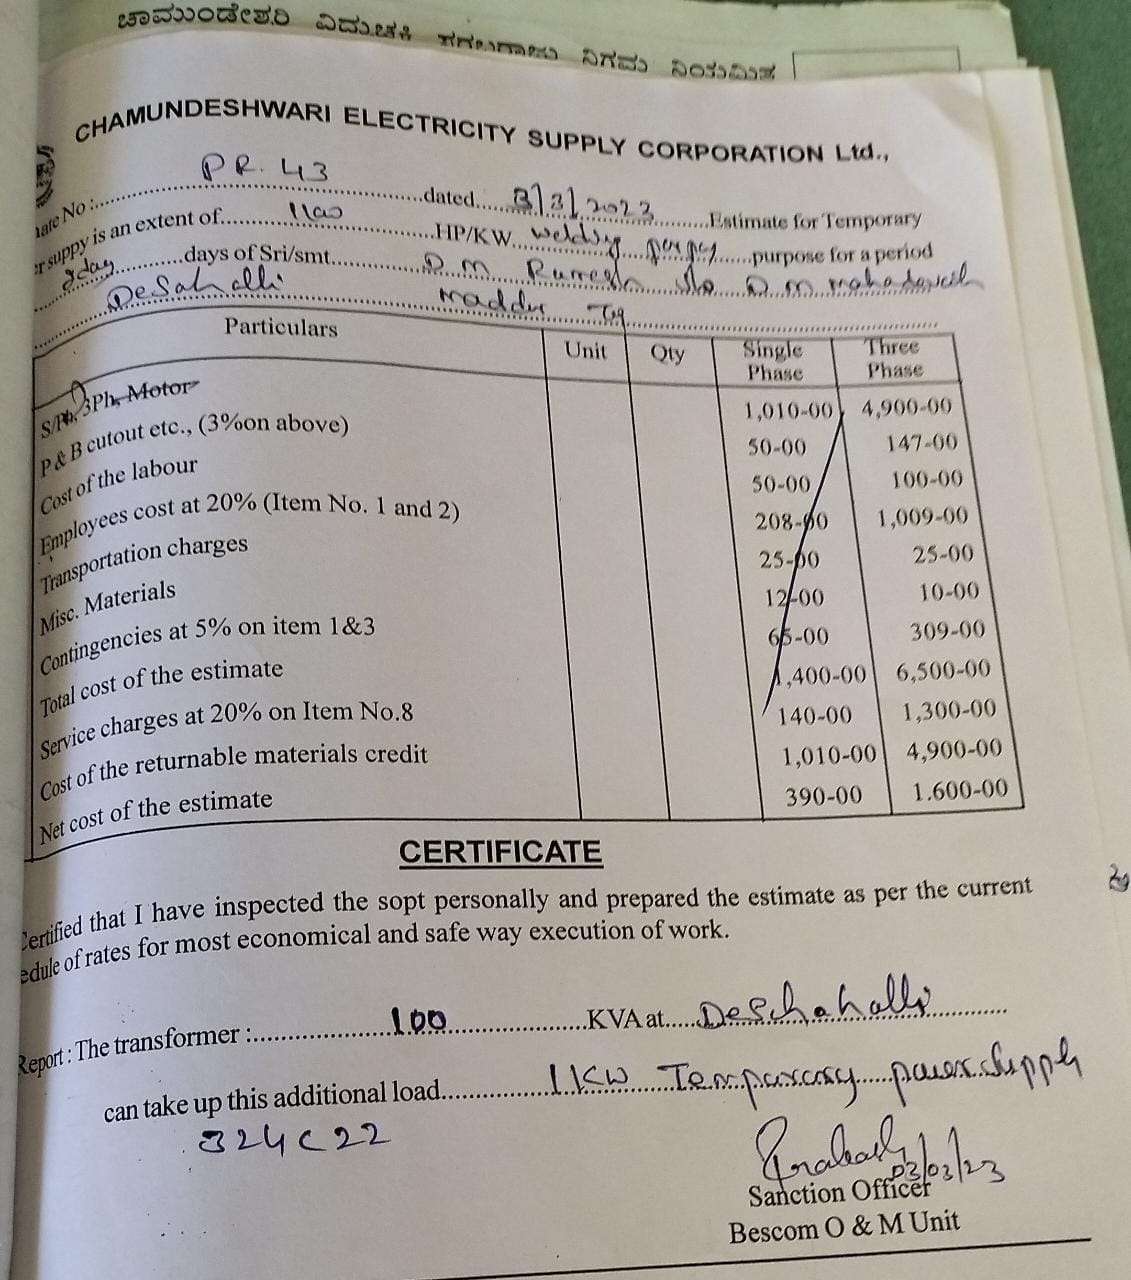 ಚಾಮುಂಡೇಶ್ವರಿ ವಿದ್ಯುಚ್ಛಕ್ತಿ ಸರಬರಾಜು ನಿಗಮ ನಿಯಮಿತ
CHAMUNDESHWARI ELECTRICITY SUPPLY CORPORATION Ltd.,
nate No :.......PR. 43.......dated.....3/3/2023.......Estimate for Temporary
er suppy is an extent of..............HP/KW...welding.........purpose for a period
.......days of Sri/smt.......D.M. Ramesh S/o D.M. mahadevaiah
Desahalli maddur Tq
Particulars Unit Qty Single Phase Three Phase
S/Ph, 3Ph, Motor 1,010-00 4,900-00
P & B cutout etc., (3%on above) 50-00 147-00
Cost of the labour 50-00 100-00
Employees cost at 20% (Item No. 1 and 2) 208-00 1,009-00
Transportation charges 25-00 25-00
Misc. Materials 12-00 10-00
Contingencies at 5% on item 1&3 65-00 309-00
Total cost of the estimate 1,400-00 6,500-00
Service charges at 20% on Item No.8 140-00 1,300-00
Cost of the returnable materials credit 1,010-00 4,900-00
Net cost of the estimate 390-00 1.600-00
CERTIFICATE
Certified that I have inspected the sopt personally and prepared the estimate as per the current
edule of rates for most economical and safe way execution of work.
Report : The transformer :.......100.......KVA at.....Deshahalli.......
can take up this additional load.......1KW Temparary power Supply
324C22
03/03/23
Sanction Officer
Bescom O & M Unit